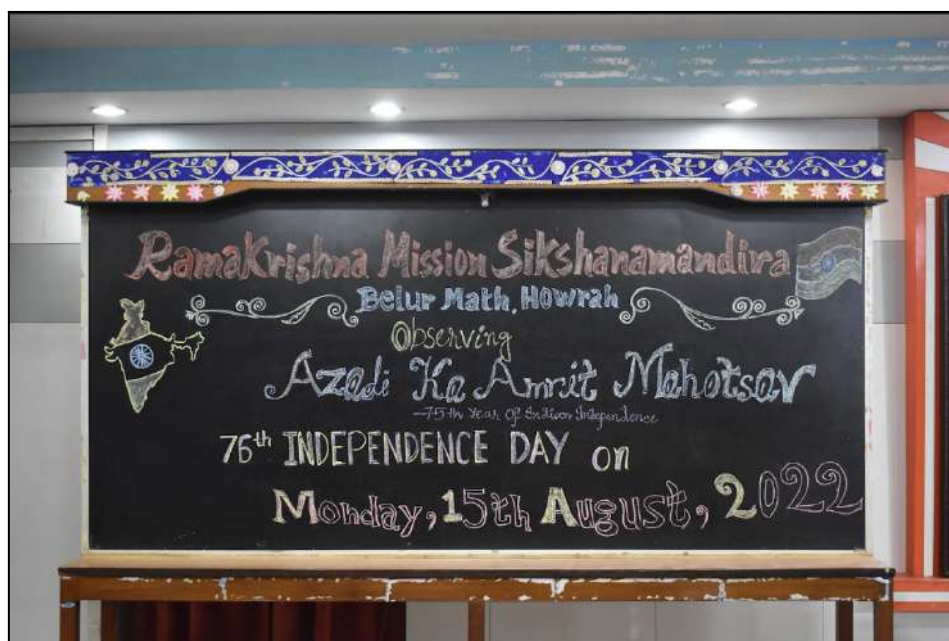 RamaKrishna Mission Sikshanamandira
Belur Math, Howrah
Observing
Azadi Ka Amrit Mahotsav
—75th Year Of Indian Independence
76th INDEPENDENCE DAY on
Monday, 15th August, 2022